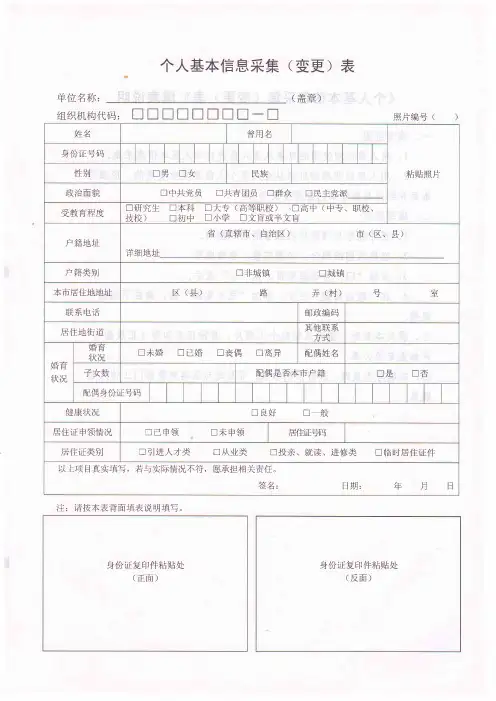 个人基本信息采集(变更)表
单位名称: (盖章)
组织机构代码: □□□□□□□□—□ 照片编号( )
姓名 曾用名
身份证号码
性别 □男 □女 民族 粘贴照片
政治面貌 □中共党员 □共青团员 □群众 □民主党派
受教育程度 □研究生 □本科 □大专(高等职校) □高中(中专、职校、
技校) □初中 □小学 □文盲或半文盲
户籍地址 省(直辖市、自治区) 市(区、县)
详细地址
户籍类别 □非城镇 □城镇
本市居住地地址 区(县) 路 弄(村) 号 室
联系电话 邮政编码
居住地街道 其他联系
方式
婚育
状况
婚育
状况 □未婚 □已婚 □丧偶 □离异 配偶姓名
子女数 配偶是否本市户籍 □是 □否
配偶身份证号码
健康状况 □良好 □一般
居住证申领情况 □已申领 □未申领 居住证号码
居住证类别 □引进人才类 □从业类 □投亲、就读、进修类 □临时居住证件
以上项目真实填写,若与实际情况不符,愿承担相关责任。
签名: 日期: 年 月 日
注:请按本表背面填表说明填写。
身份证复印件粘贴处
(正面)
身份证复印件粘贴处
(反面)